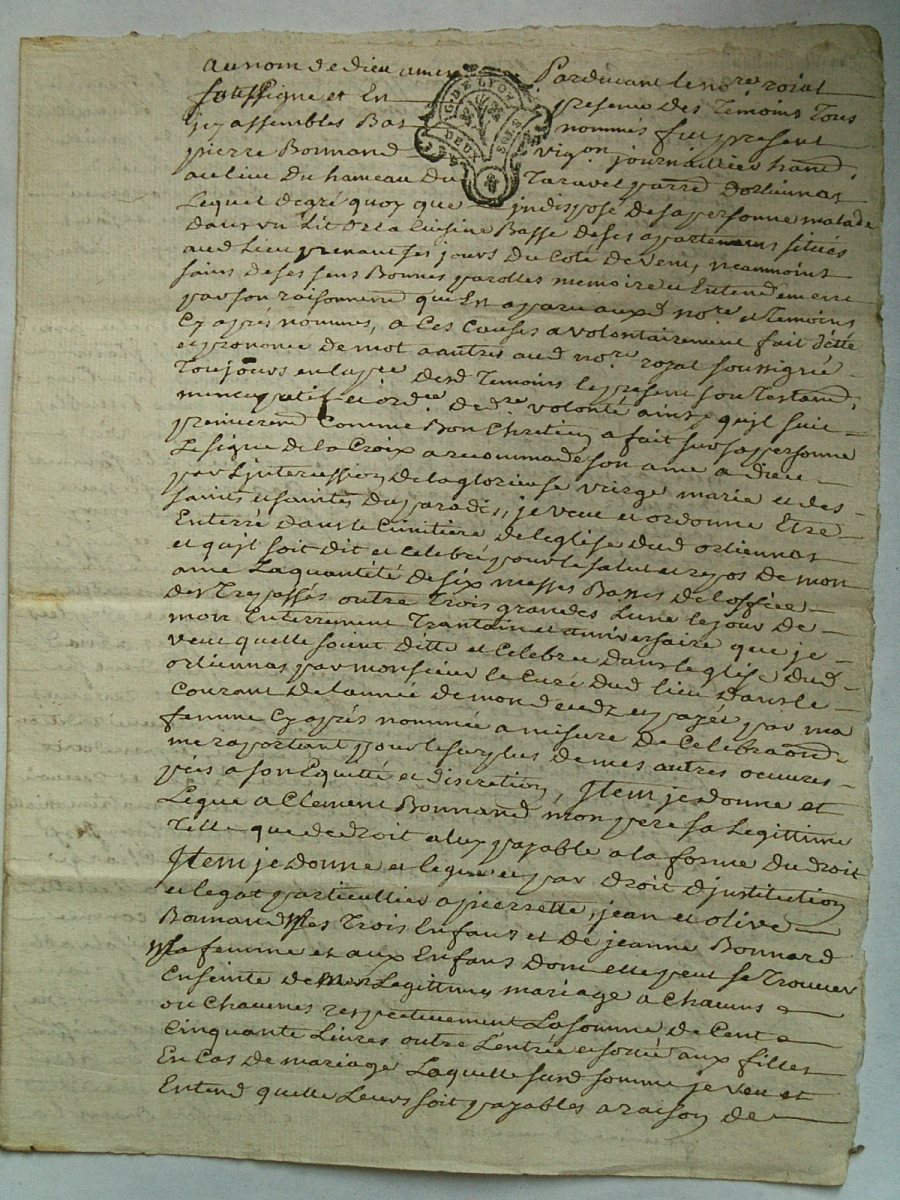 au nom de dieu amen Pardevant le no.re roial
soussigne et En presence des Temoins Tous
icy assembles Bas nommés fut present
G. DE LYON
DEUX SOLS
pierre Bonnand vigon journallier hand.
au lieu du hameau du Taravel parrd dorliennas
Lequel de gré quoy que indisposé de sa personne malade
dans un Lit de la Cuisine Basse de ses appartemens situés
aud Lieu prenant ses jours du Coté de vent, neanmoins
sains de ses sens Bonnes parolles memoire et Entendement
par son raisonnement qui En aparu auxd no.re et Temoins
Cy aprés nommes, a Ces Causes a volontairement fait ditté
et prononcé de mot a autres aud no.re roial soussigné
Toujours en la pce desd Temoins le present son Testamd.
nuncupatif et ord.re de d.re volonté ainsy qu'jl suit
premierement Comme Bon Chretien a fait sur sa personne
Le signe de la Croix a recommandé son ame a dieu
par L'intercession de la glorieuse vierge marie et des
saints et saintes du paradis, je veut et ordonne Etre
Enterré dans le Cimitiere de leglise dud orliennas
et qu'jl soit dit et Celebré pour le salut et repos de mon
ame La quantité de six messes Basses de loffice
des Trepassés outre Trois grandes Lune le jour de
mon Enterrement Trantain et anniversaire que je
veut quelle soient ditte et Celebrée dans leglise dud
orliennas par monsieur le Curé dud lieu dans le
Courant de lannée de mon decedz et payée par ma
femme Cy aprés nommée a mesure de Celebraond.
me raportant pour le surplus de mes autres oeuvres
pies a son Equitté et discretion, Jtem je donne et
Legue a Clement Bonnand mon pere sa Legittime
Telle que de droit a luy payable a la forme du droit
Jtem je donne et legue et par droit djnstitution
et legat particullier a pierrette, jean et olive
Bonnand Mes Trois Enfans et de jeanne Bonnard
Ma femme et aux Enfans dont elle peut se Trouver
Enseinte de Mon Legittime mariage a Chacuns
ou Chacunes respectivement La somme de Cent
Cinquante Livres outre L'entrée et sortie aux filles
En Cas de mariage Laquelle susd somme je veu et
Entend quelle Leurs soit payables a raison de